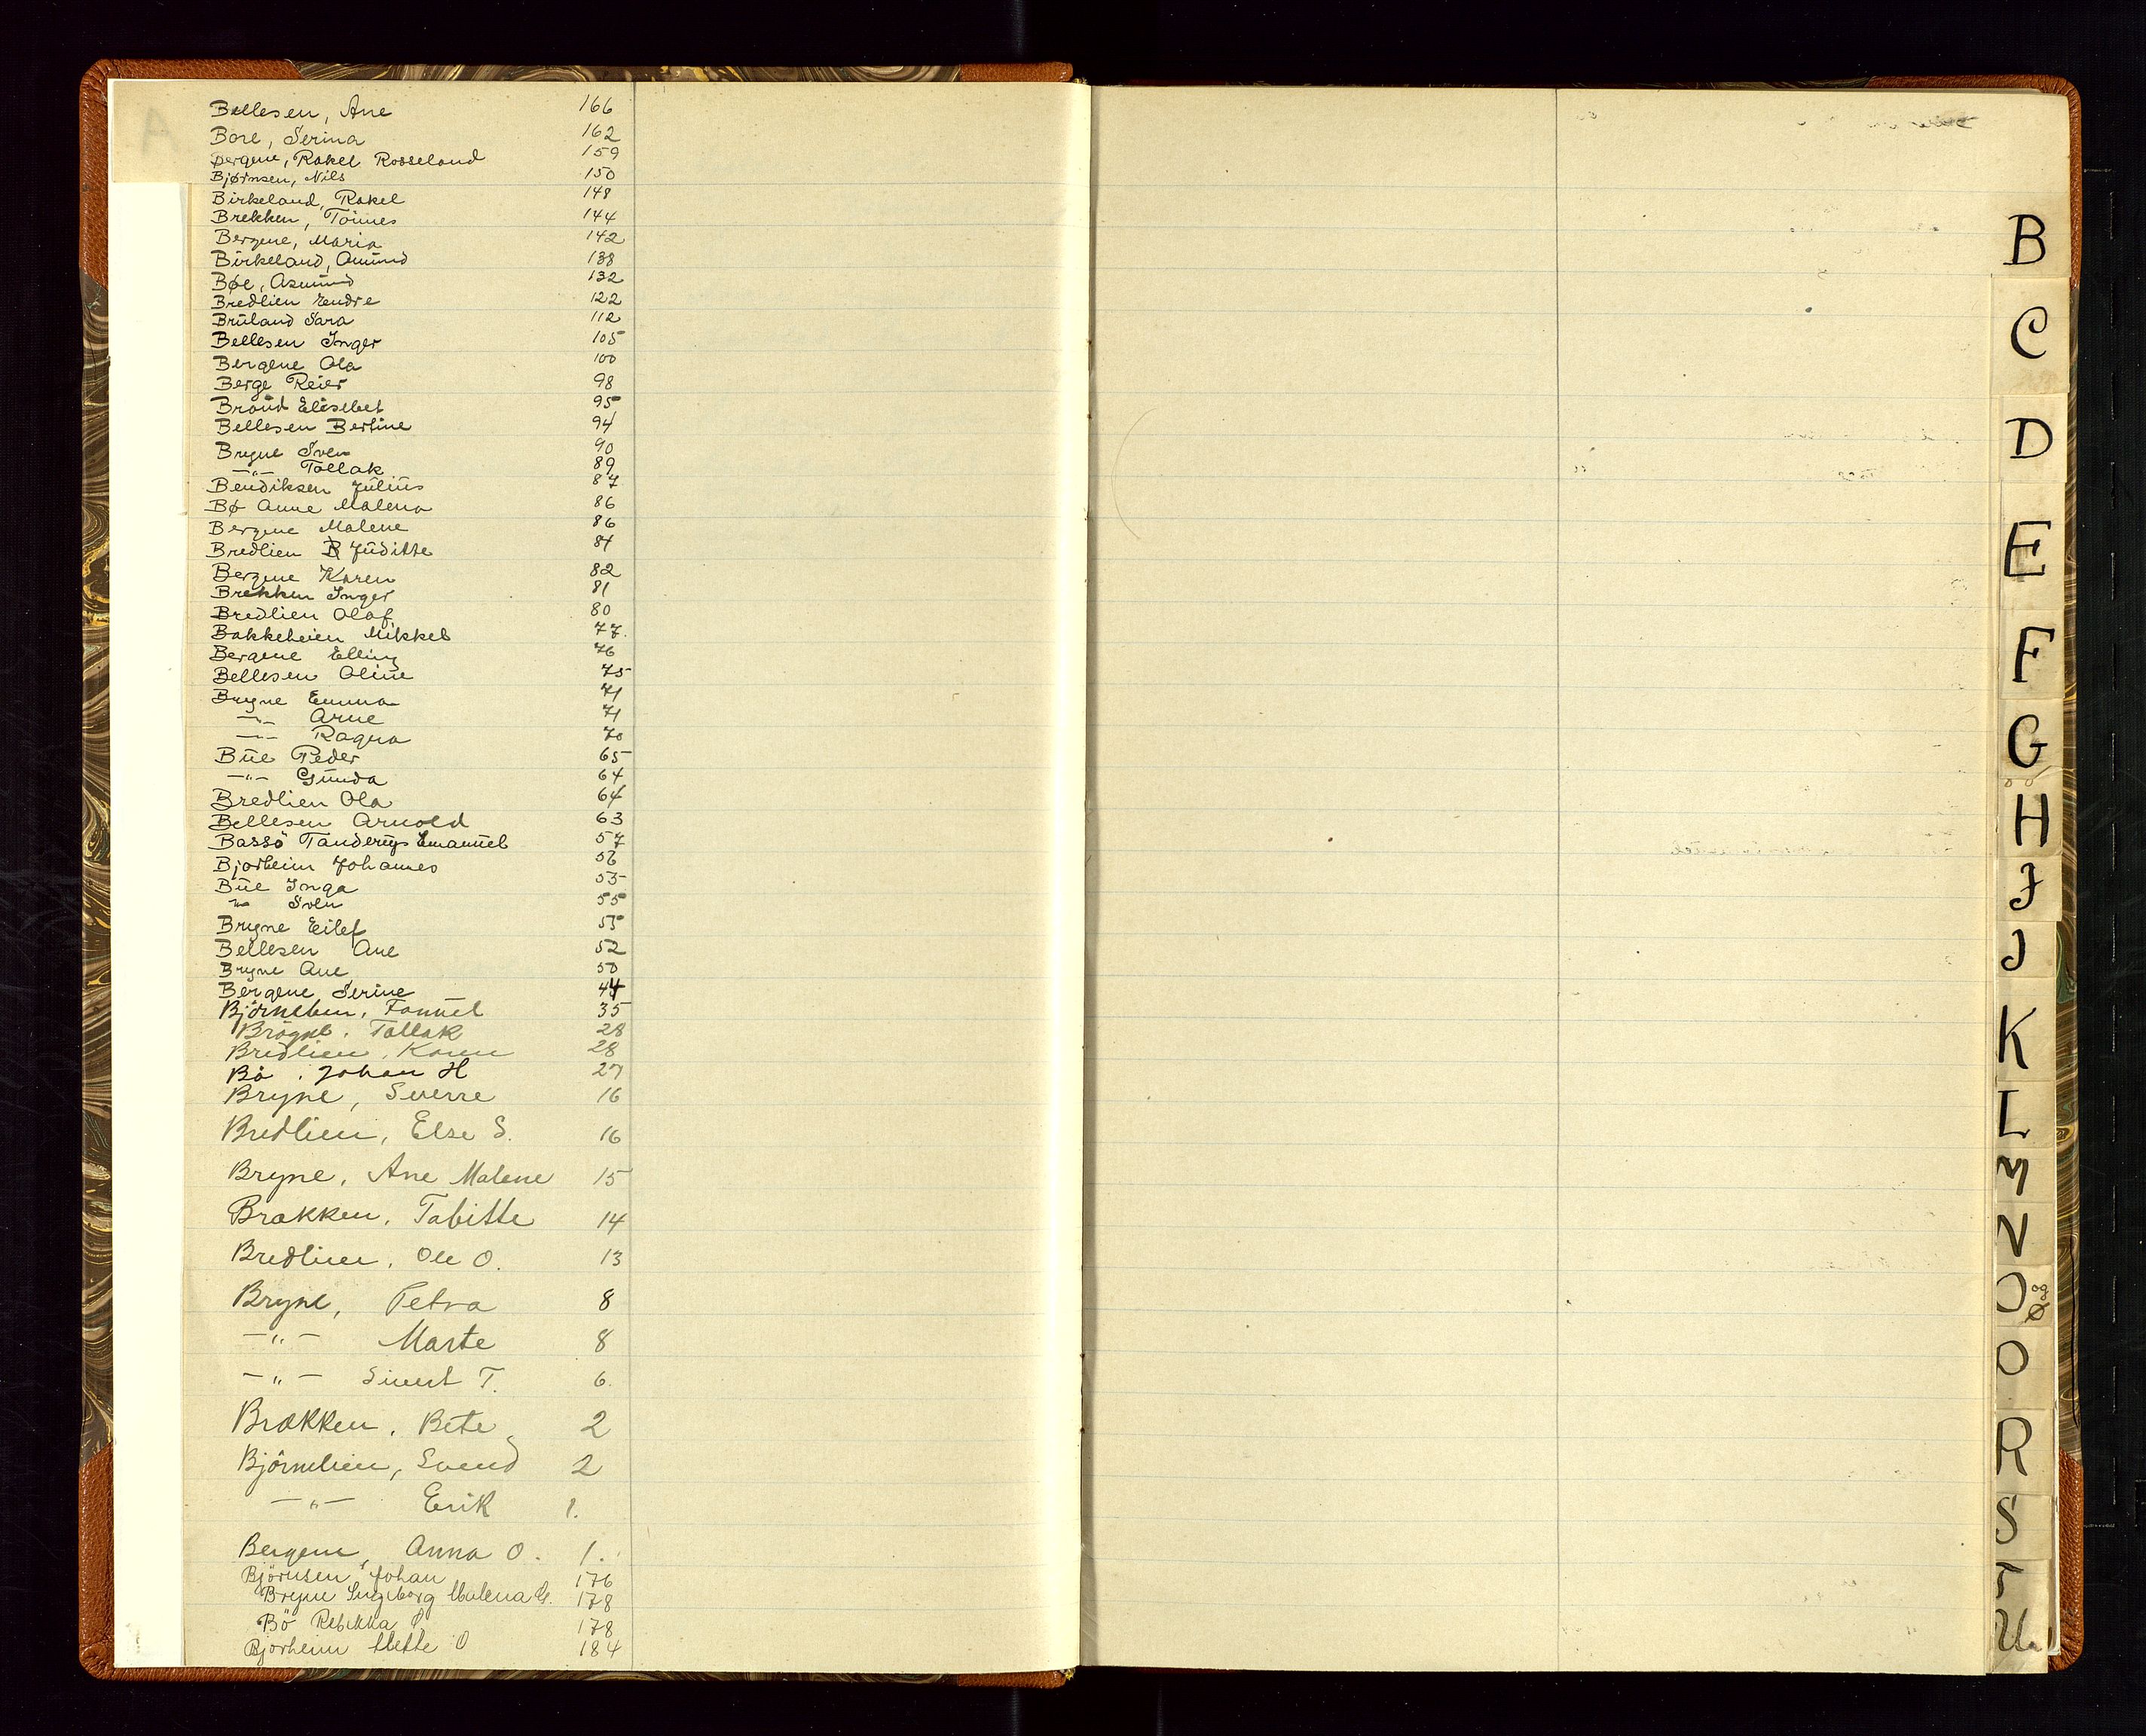 A
Bellesen, Ane 166
Bore, Serina 162
Bergene, Rakel Rosseland 159
Bjørnsen, Nils 150
Birkeland, Rakel 148
Brekken, Tönnes 144
Bergene, Maria 142
Birkeland, Amund 138
Bøe, Asmund 132
Bredlien Endre 122
Bruland Sara 112
Bellesen Inger 105
Bergene Ola 100
Berge Reier 98
Braud Elisebet 95
Bellesen Bertine 94
Bryne Sven 90
—"— Tollak 89
Bendiksen Julius 87
Bø Anne Malena 86
Bergene Malene 86
Bredlien Juditte 84
Bergene Karen 82
Brekken Inger 81
Bredlien Olaf 80
Bakkeheien Mikkel 77.
Bergene Elling 76
Bellesen Oline 75
Bryne Emma 71
—"— Arne 71
—"— Ragna 70
Bue Peder 65
—"— Gunda 64
Bredlien Ola 64
Bellesen Arnold 63
Bassö Tanderup Emanuel 57
Bjorheim Johannes 56
Bue Inga 55
" Sven 55
Bryne Eilef 55
Bellesen Ane 52
Bryne Ane 50
Bergene Serine 44
Björnelien, Fanuel 35
Brögne, Tollak 28
Bredlien, Karen 28
Bö, Johan H 27
Bryne, Sverre 16
Bredlien, Else S. 16
Bryne, Ane Malene 15
Brækken, Tabitte 14
Bredlien, Ole O. 13
Bryne, Petra 8
—"— Marte 8
—"— Sivert T. 6
Brækken, Bete 2
Björnelien, Svend 2
—"— Erik 1.
Bergene, Anna O. 1.
Björnsen, Johan 176
Bryne Ingeborg Malena G. 178
Bö Rebekka O 178
Bjorheim Mette O 184
B
C
D
E
F
G
H
I
J
K
L
M
N
O og Ø
O
R
S
T
U